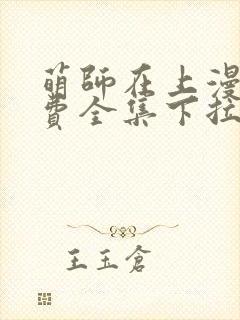 萌師在上漫
費全集下拉
王玉倉